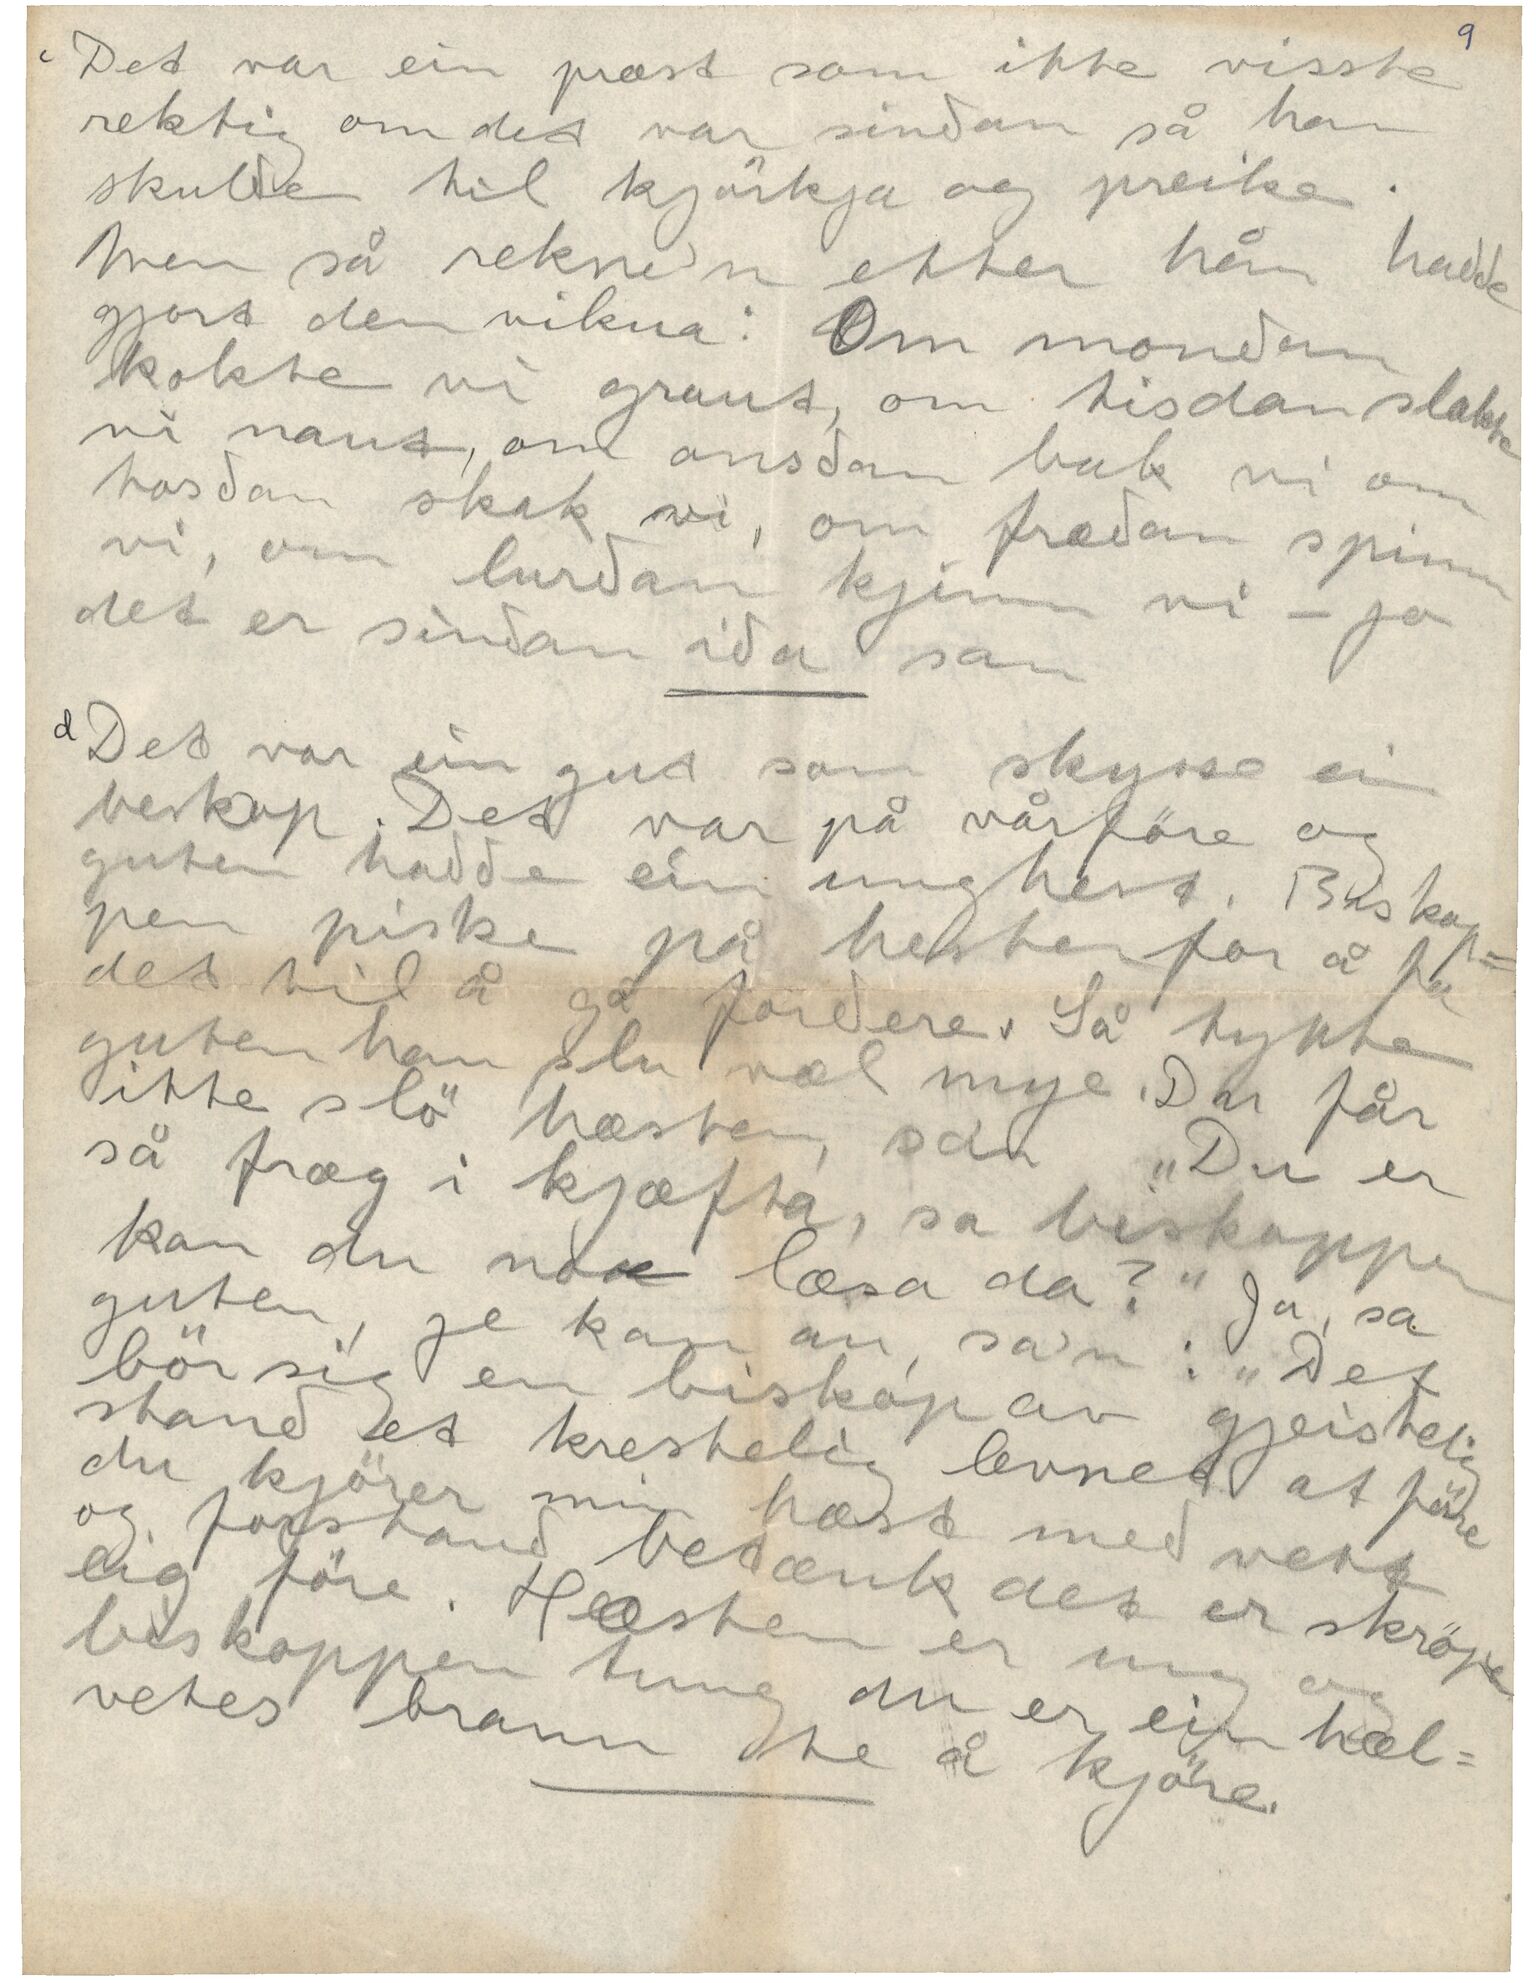 9
c Det var ein præst som ikke visste
rektig om det var sinðan så han
skulðe til kjörkja og preike.
Men så rekne'n etter hån haððe
gjort den vikua: Om monðan
kokte vi graut, om tisdan slakte
vi naut, om onsðan bak vi om
tosðan skak vi, om fræðan spinn
vi, om lurðan kjinn vi – ja
det er sinðan iða san
d Det var ein gut som skysse ein
beskop. Det var på vårföre og
guten haððe ein unghest. Biskop=
pen piske på hesten for å få
det til å gå forðere. Så tykte
guten han slu væl mye. Du får
ikke slö hæsten, sa'n „Du er
så fræg i kjæfta, sa biskoppen
kan du nok læsa da?" Ja, sa
guten, je kan au, sa'n: „Det
bör sig en biskop av gjeistelig
stand et krestelig levned at före
du kjörer min hæst med vett
og forstanð betænk det er skröpe
lig före. Hæsten er ung og
biskoppen tung du er ein hæl=
vetes brann te å kjöre.